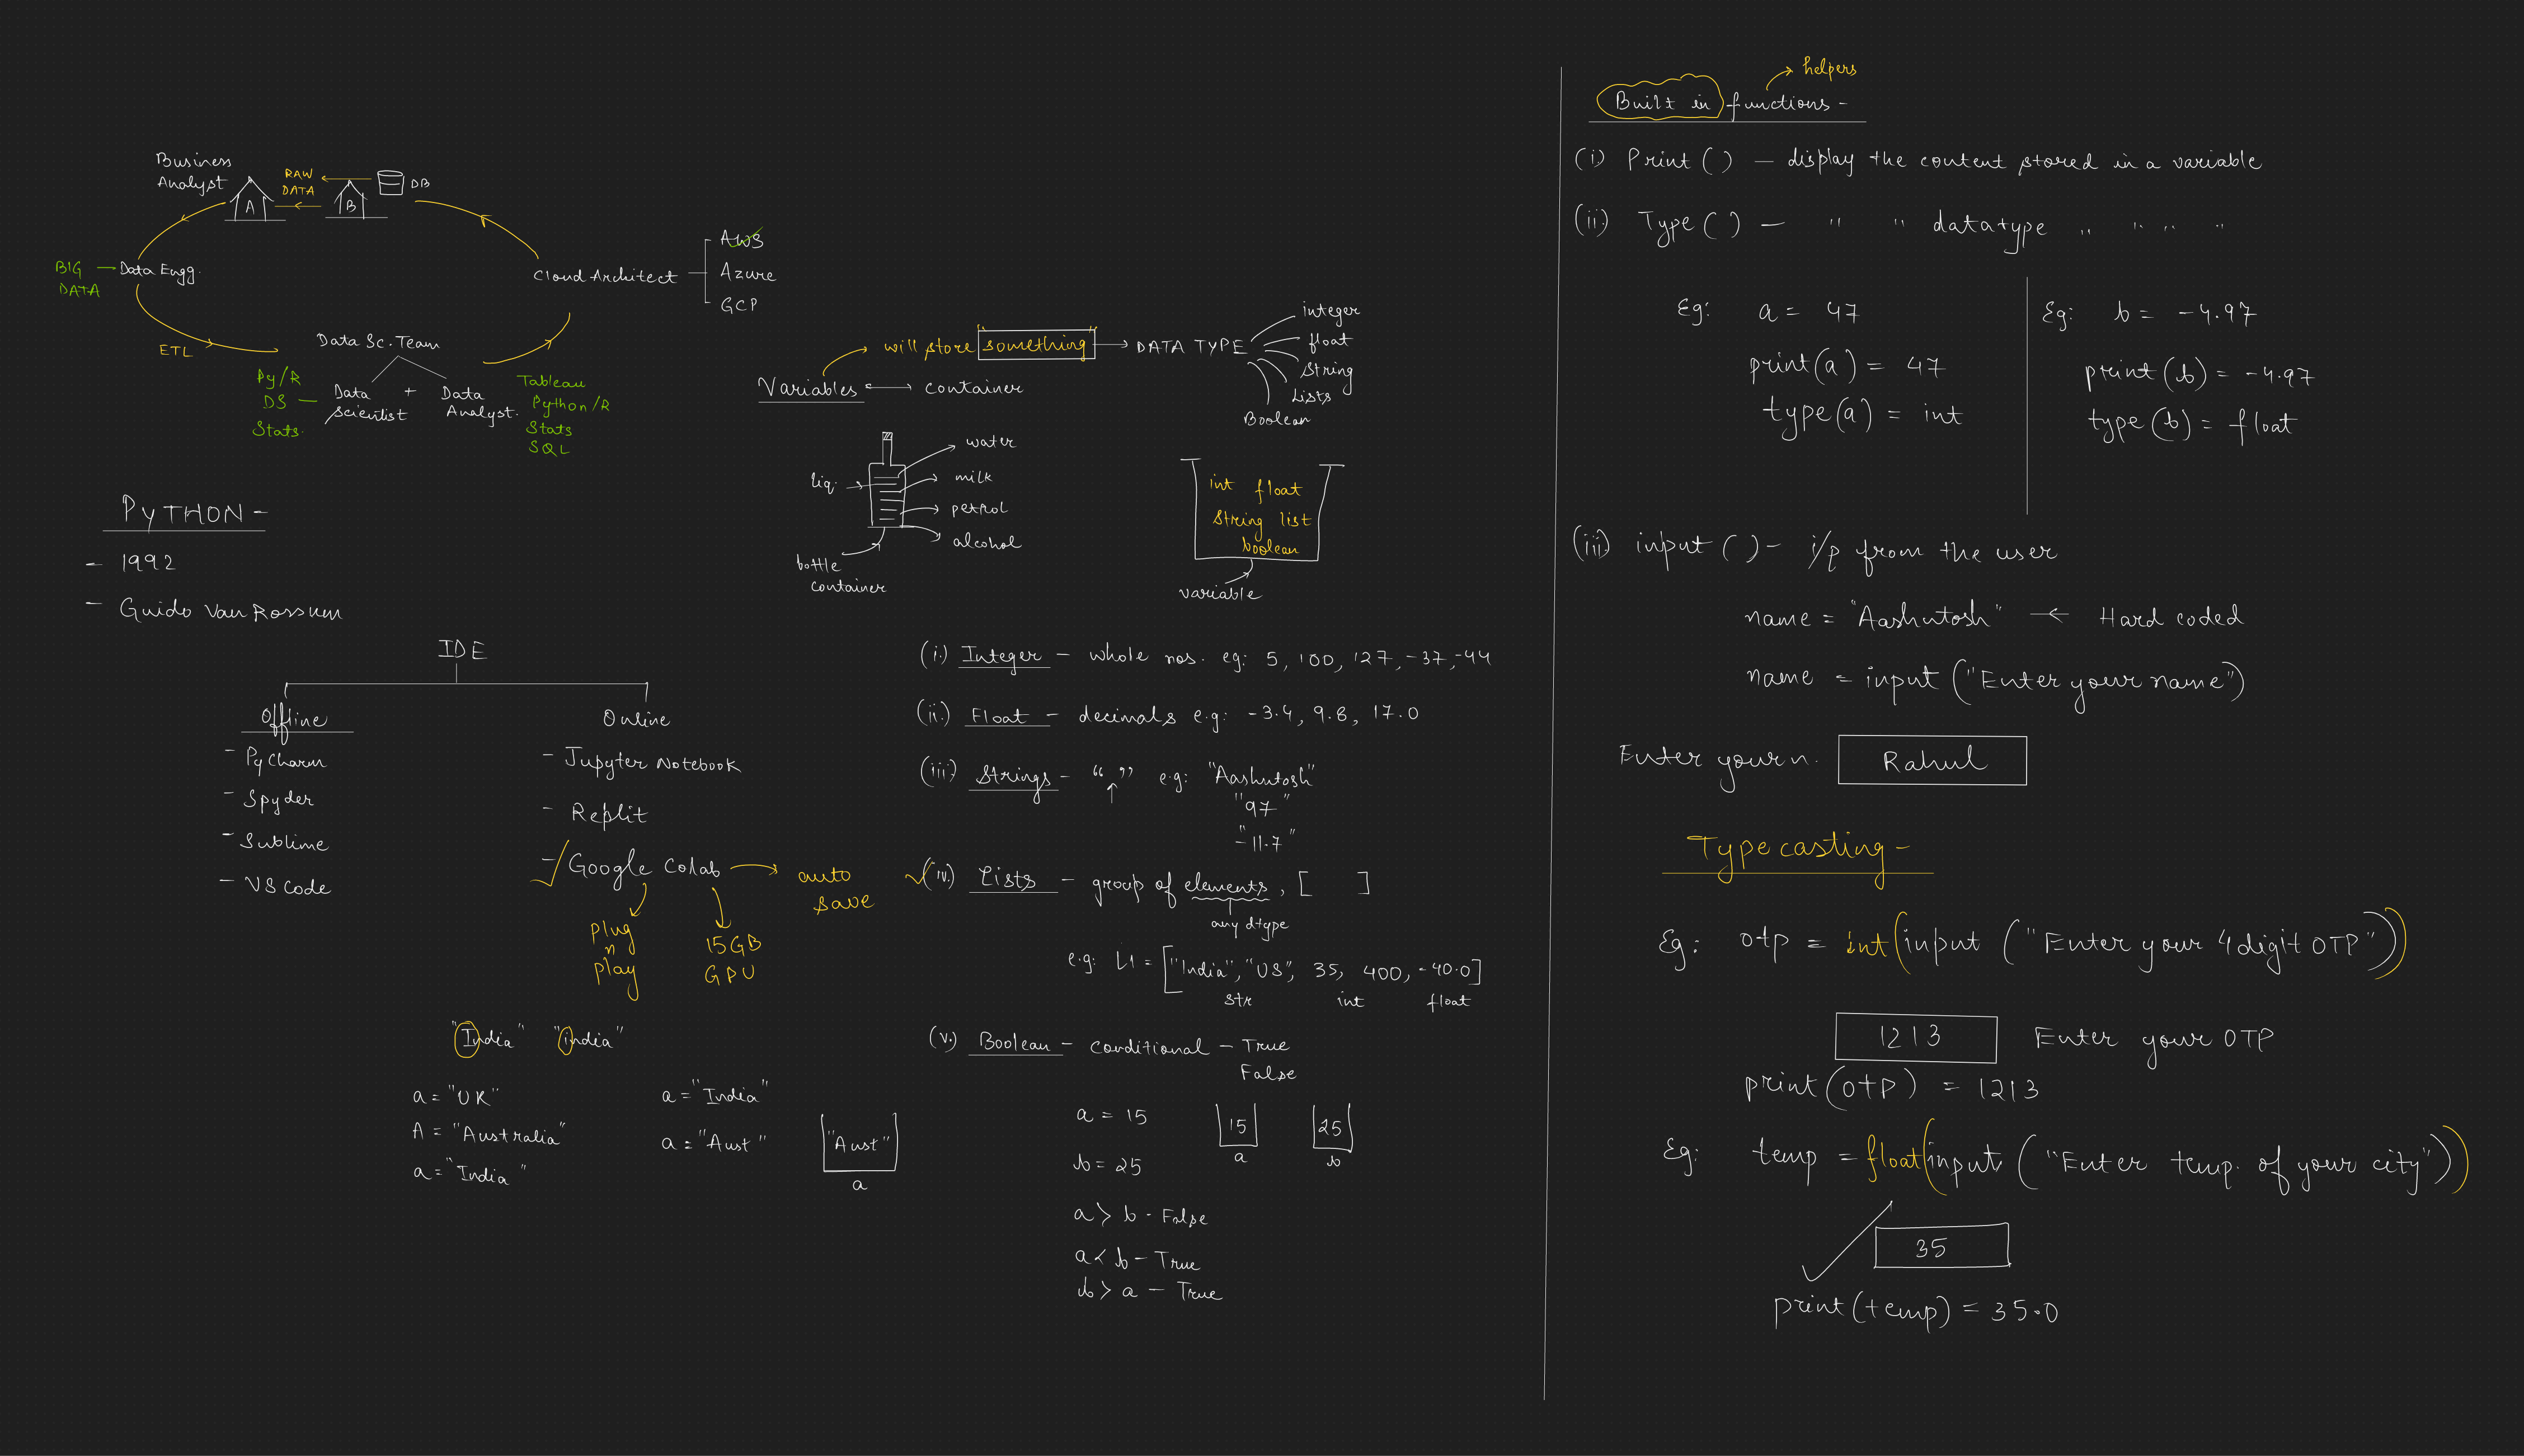 Business
Analyst
A
RAW
DATA
B
DB
BIG
DATA
Data Engg.
ETL
Data Sc. Team
Py/R
DS
Stats.
Data
Scientist
+
Data
Analyst.
Tableau
Python/R
Stats
SQL
Cloud Architect
AWS
Azure
GCP
PyTHON -
- 1992
- Guido Van Rossum
IDE
Offline
- PyCharm
- Spyder
- Sublime
- VS Code
Online
- Jupyter Notebook
- Replit
- Google Colab
auto
save
plug
n
play
15GB
GPU
"India" "india"
a = "UK"
A = "Australia"
a = "India"
a = "India"
a = "Aust"
"Aust"
a
will store "something"
DATA TYPE
integer
float
String
Lists
Boolean
Variables
container
liq.
water
milk
petrol
alcohol
bottle
container
int float
String list
boolean
variable
(i.) Integer - whole nos. eg: 5, 100, 127, -37, -44
(ii.) Float - decimals e.g: -3.4, 9.8, 17.0
(iii) Strings - “ ” e.g: "Aashutosh"
"97"
"-11.7"
(iv.) Lists - group of elements, [ ]
any dtype
e.g: L1 = ["India", "US", 35, 400, -40.0]
str int float
(v.) Boolean - conditional - True
False
a = 15
b = 25
15
a
25
b
a > b - False
a < b - True
b > a - True
helpers
Built in functions -
(i) Print ( ) — display the content stored in a variable
(ii) Type ( ) — " " datatype " " " "
Eg: a = 47
print(a) = 47
type(a) = int
Eg: b = -4.97
print(b) = -4.97
type(b) = float
(iii) input ( ) - i/p from the user
name = "Aashutosh" ← Hard coded
name = input ("Enter your name")
Enter your n. Rahul
Type casting -
Eg: otp = int(input ("Enter your 4 digit OTP"))
1213 Enter your OTP
print(otp) = 1213
Eg: temp = float(input ("Enter temp. of your city"))
35
print(temp) = 35.0